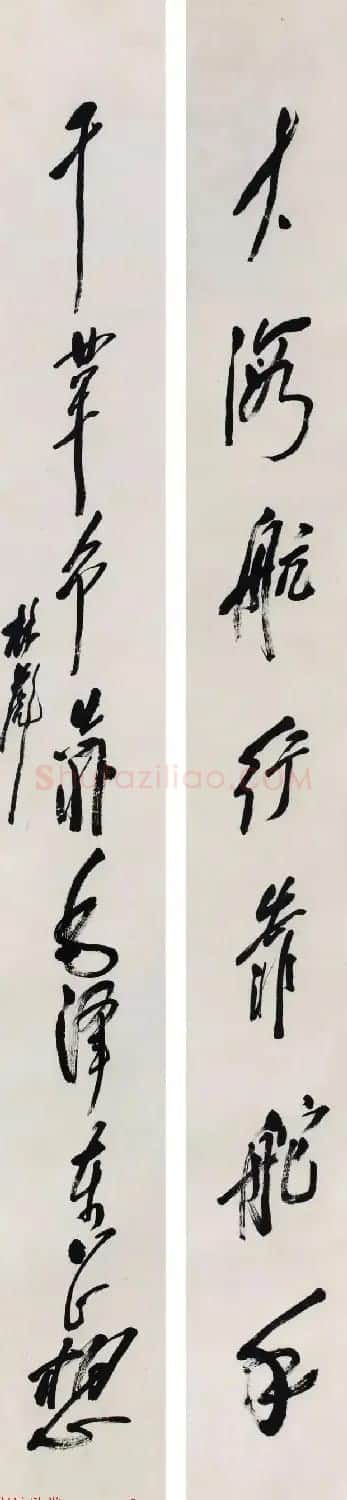 大海航行靠舵手
干革命靠毛泽东思想
林彪
Shufaziliao.COM